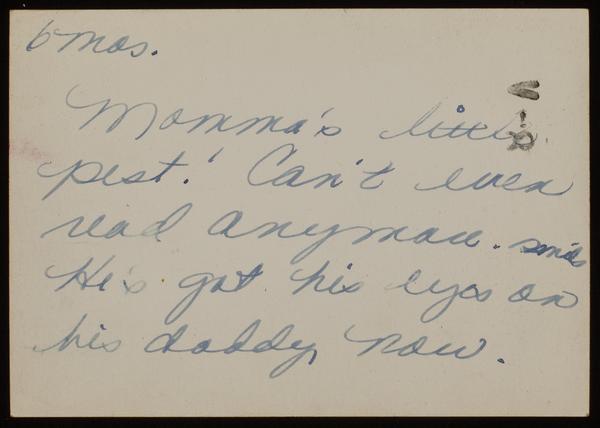 6 mos.
Momma's little
pest! Can't even
read anymore. smile
He's got his eyes on
his daddy now.